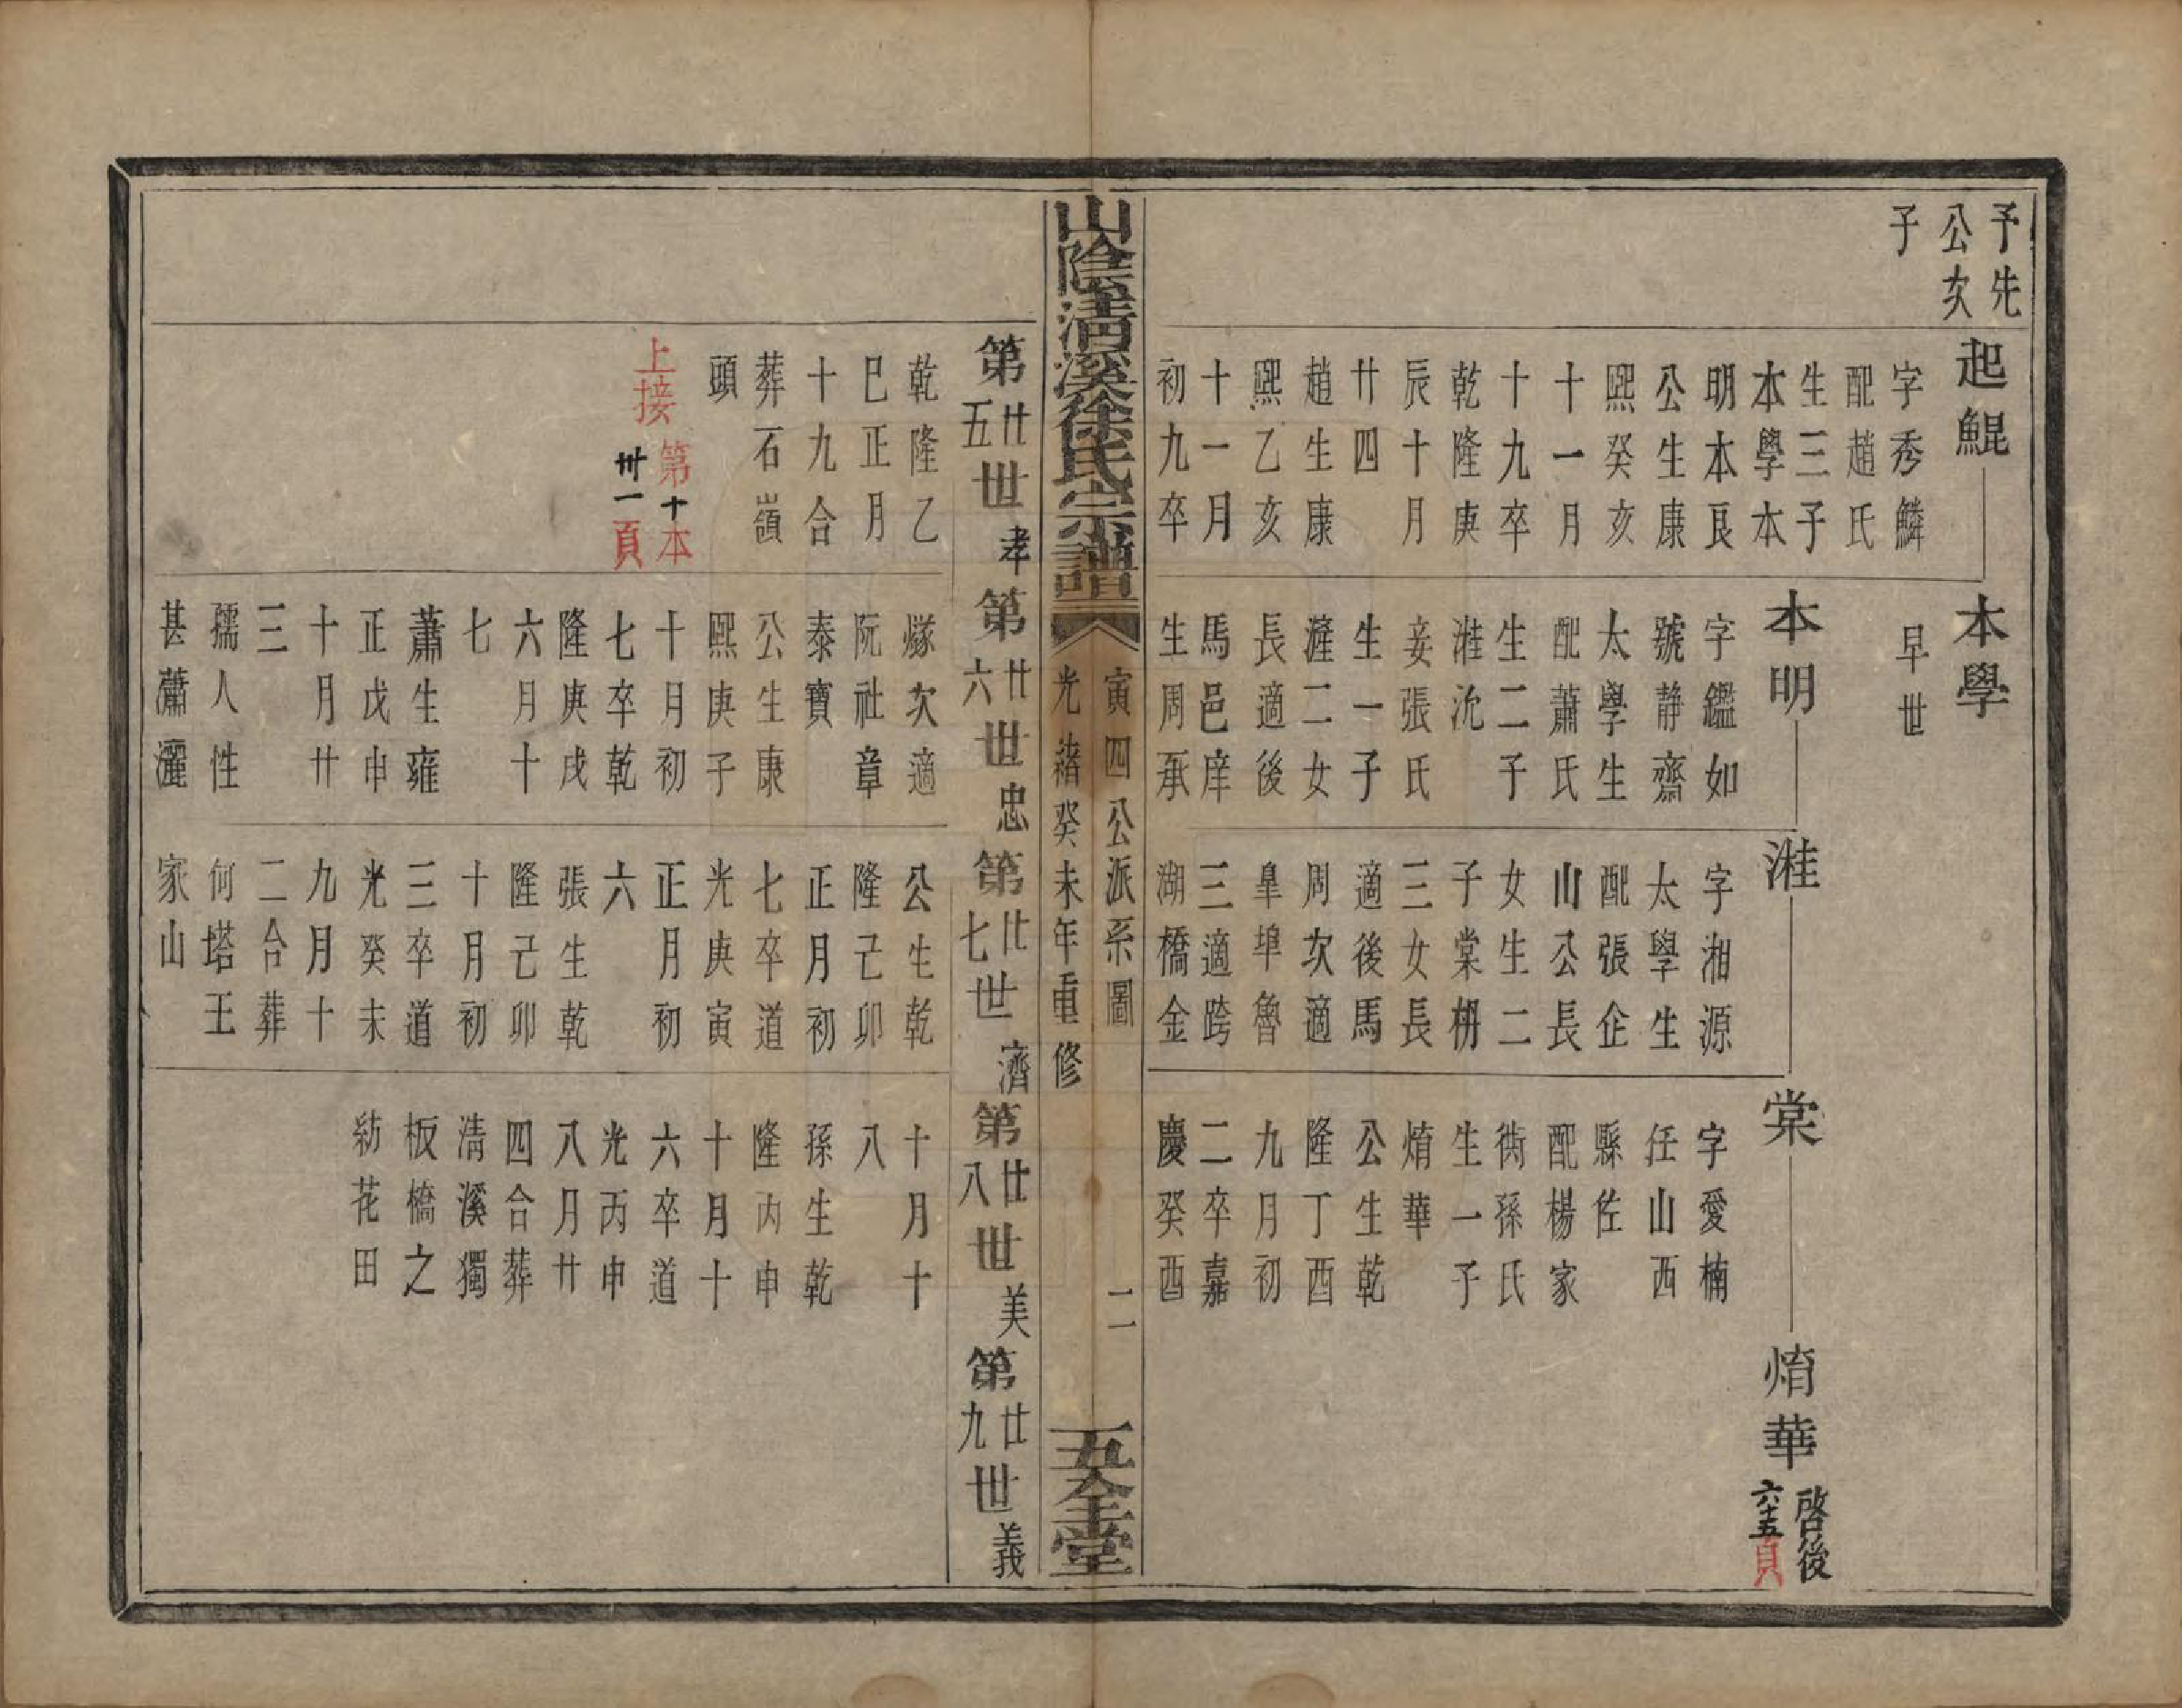 予先
公次
子
起鯤
字秀鱗
配趙氏
生三子
本學本
明本良
公生康
熙癸亥
十一月
十九卒
乾隆庚
辰十月
廿四
趙生康
熙乙亥
十一月
初九卒
本學
早世
本明
字鑑如
號静齋
太學生
配蕭氏
生二子
漼沇
妾張氏
生一子
漄二女
長適後
馬邑庠
生周承
漼
字湘源
太學生
配張企
山公長
女生二
子棠枬
三女長
適後馬
周次適
皐埠魯
三適跨
湖橋金
棠
字愛楠
任山西
縣佐
配楊家
衖孫氏
生一子
焴華
公生乾
隆丁酉
九月初
二卒嘉
慶癸酉
焴華
啓後
六十五頁
山陰清溪徐氏宗譜
寅四公派系圖
二
光緒癸未年重修
五全堂
第廿五世 孝
第廿六世 忠
第廿七世 濟
第廿八世 美
第廿九世 義
乾隆乙
巳正月
十九合
葬石嶺
頭
上接第十本
卅一頁
燧次適
阮社章
泰寶
公生康
熙庚子
十月初
七卒乾
隆庚戌
六月十
七
蕭生雍
正戊申
十月廿
三
孺人性
甚蕭灑
公生乾
隆己卯
正月初
七卒道
光庚寅
正月初
六
張生乾
隆己卯
十月初
三卒道
光癸未
九月十
二合葬
何塔王
家山
十月十
八
孫生乾
隆丙申
十月十
六卒道
光丙申
八月廿
四合葬
清溪獨
板橋之
紡花田